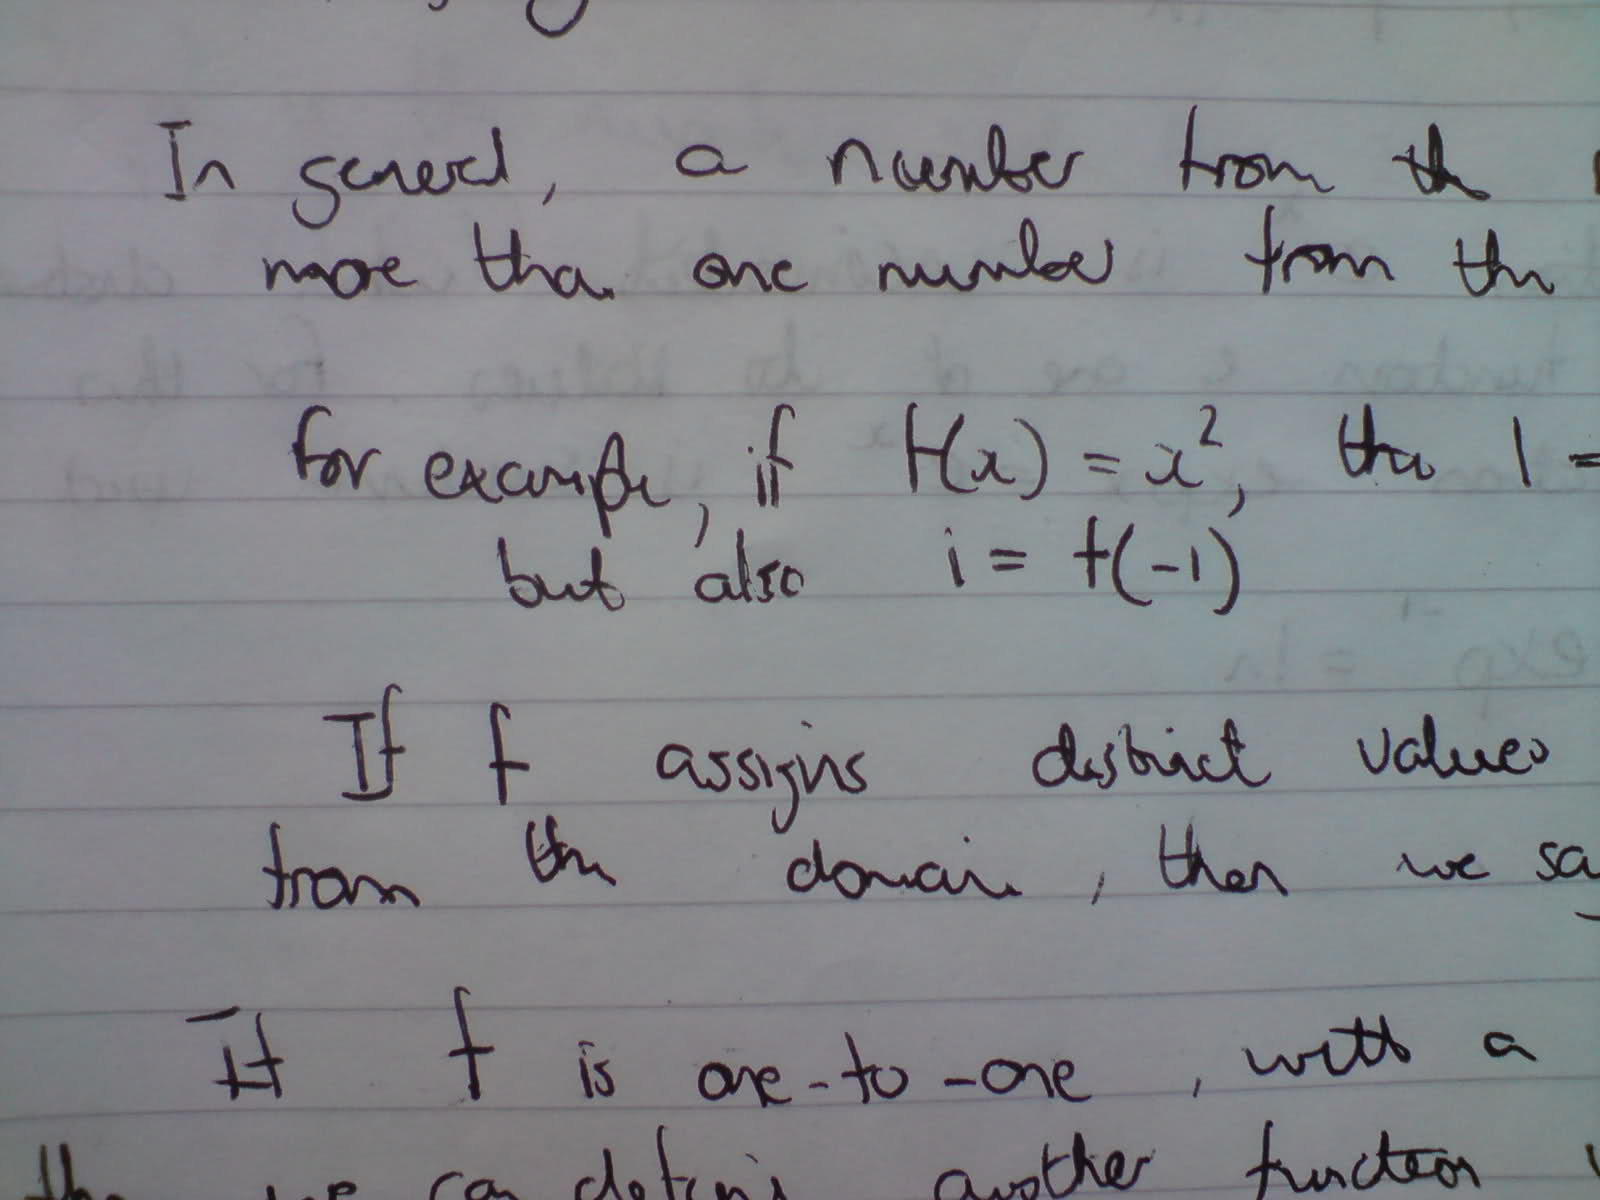 In general, a number from the
more than one number from the
for example, if f(x) = x², then 1 =
but also 1 = f(-1)
If f assigns distinct values
from the domain, then we sa
If f is one-to-one, with a
the we can define another function